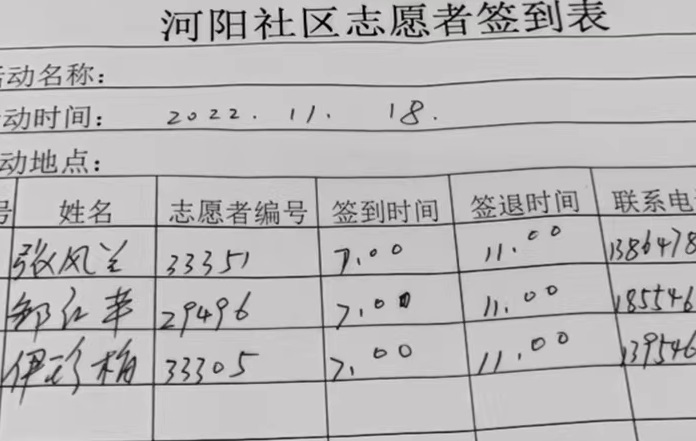 河阳社区志愿者签到表
活动名称：
活动时间： 2022. 11. 18.
活动地点：
号 姓名 志愿者编号 签到时间 签退时间 联系电
张凤兰 33351 7.00 11.00 1386478
邹红苹 29496 7.00 11.00 185546
伊珍梅 33305 7.00 11.00 139546